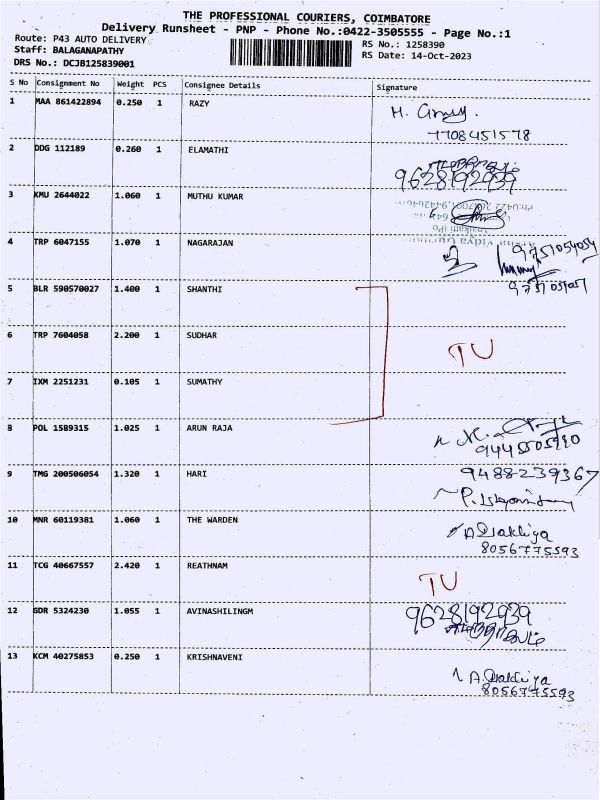 THE PROFESSIONAL COURIERS, COIMBATORE
Delivery Runsheet - PNP - Phone No.:0422-3505555 - Page No.:1
Route: P43 AUTO DELIVERY
Staff: BALAGANAPATHY
DRS No.: DCJB125839001
RS No.: 1258390
RS Date: 14-Oct-2023
S No Consignment No Weight PCS Consignee Details Signature
1 MAA 861422894 0.250 1 RAZY
7708451578
2 DDG 112189 0.260 1 ELAMATHI
9628192939
3 KMU 2644022 1.060 1 MUTHU KUMAR
4 TRP 6047155 1.070 1 NAGARAJAN
9751054054
5 BLR 590570027 1.400 1 SHANTHI
6 TRP 7604058 2.200 1 SUDHAR
TU
7 IXM 2251231 0.105 1 SUMATHY
8 POL 1589315 1.025 1 ARUN RAJA
9445505990
9 TMG 200506054 1.320 1 HARI
9488239367
10 MNR 60119381 1.060 1 THE WARDEN
8056775593
11 TCG 40667557 2.420 1 REATHNAM
TU
12 GDR 5324230 1.055 1 AVINASHILINGM
9628192939
13 KCM 40275853 0.250 1 KRISHNAVENI
8056775593